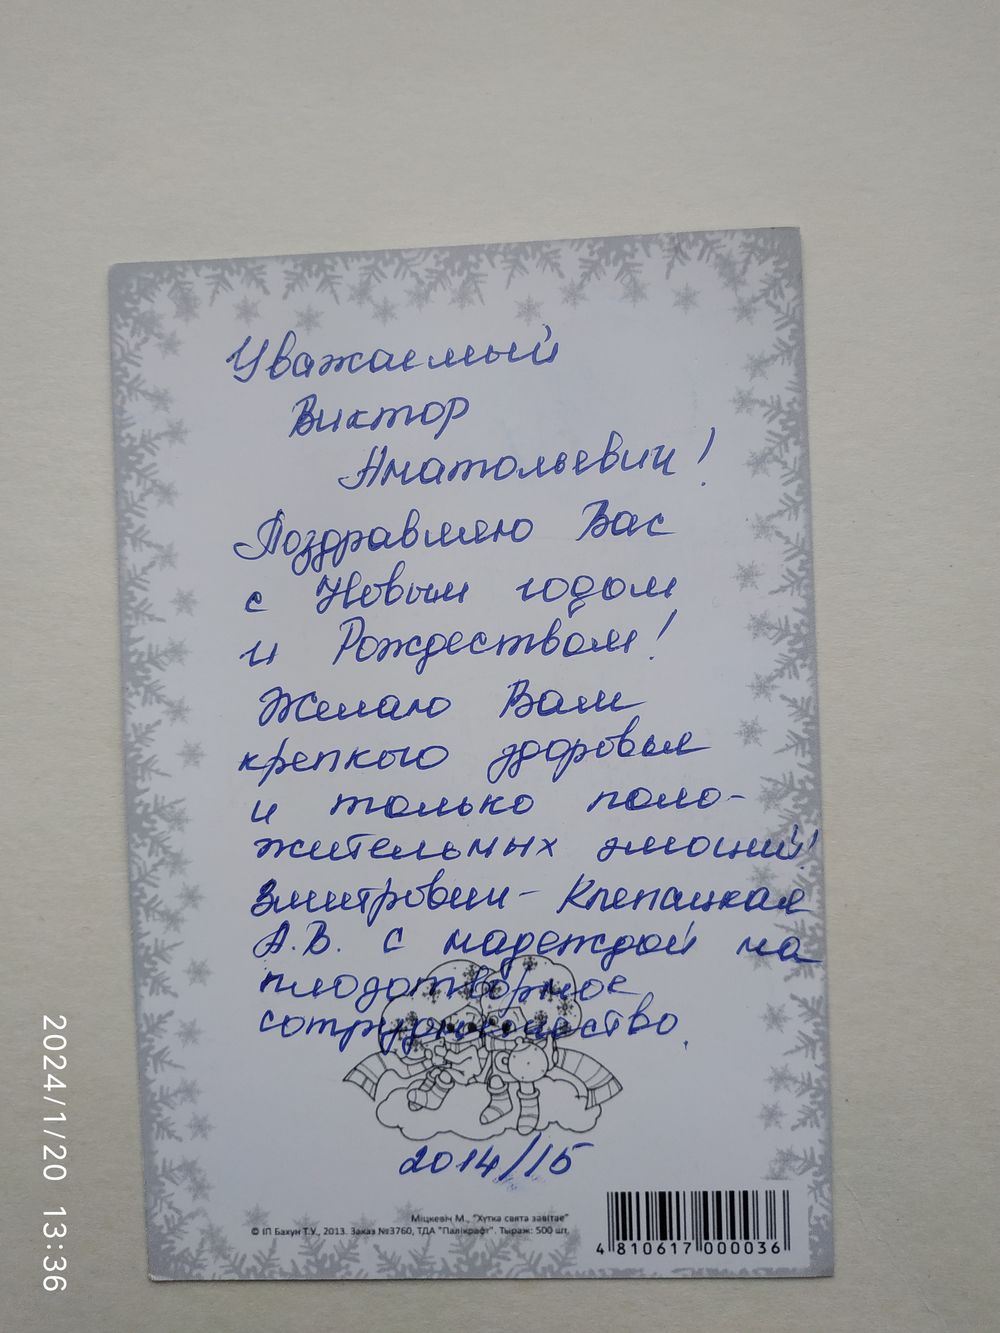 Уважаемый
Виктор
Анатольевич!
Поздравляю Вас
с Новым годом
и Рождеством!
Желаю Вам
крепкого здоровья
и только поло-
жительных эмоций!
Змитрович - Клепацкая
А.В. с надеждой на
плодотворное
сотрудничество.
2014/15
Міцкевіч М., "Хутка свята завітае"
© ІП Бахун Т.У., 2013. Заказ №3760, ТДА "Палікрафт". Тыраж: 500 шт.
4 810617 000036
2024/1/20 13:36